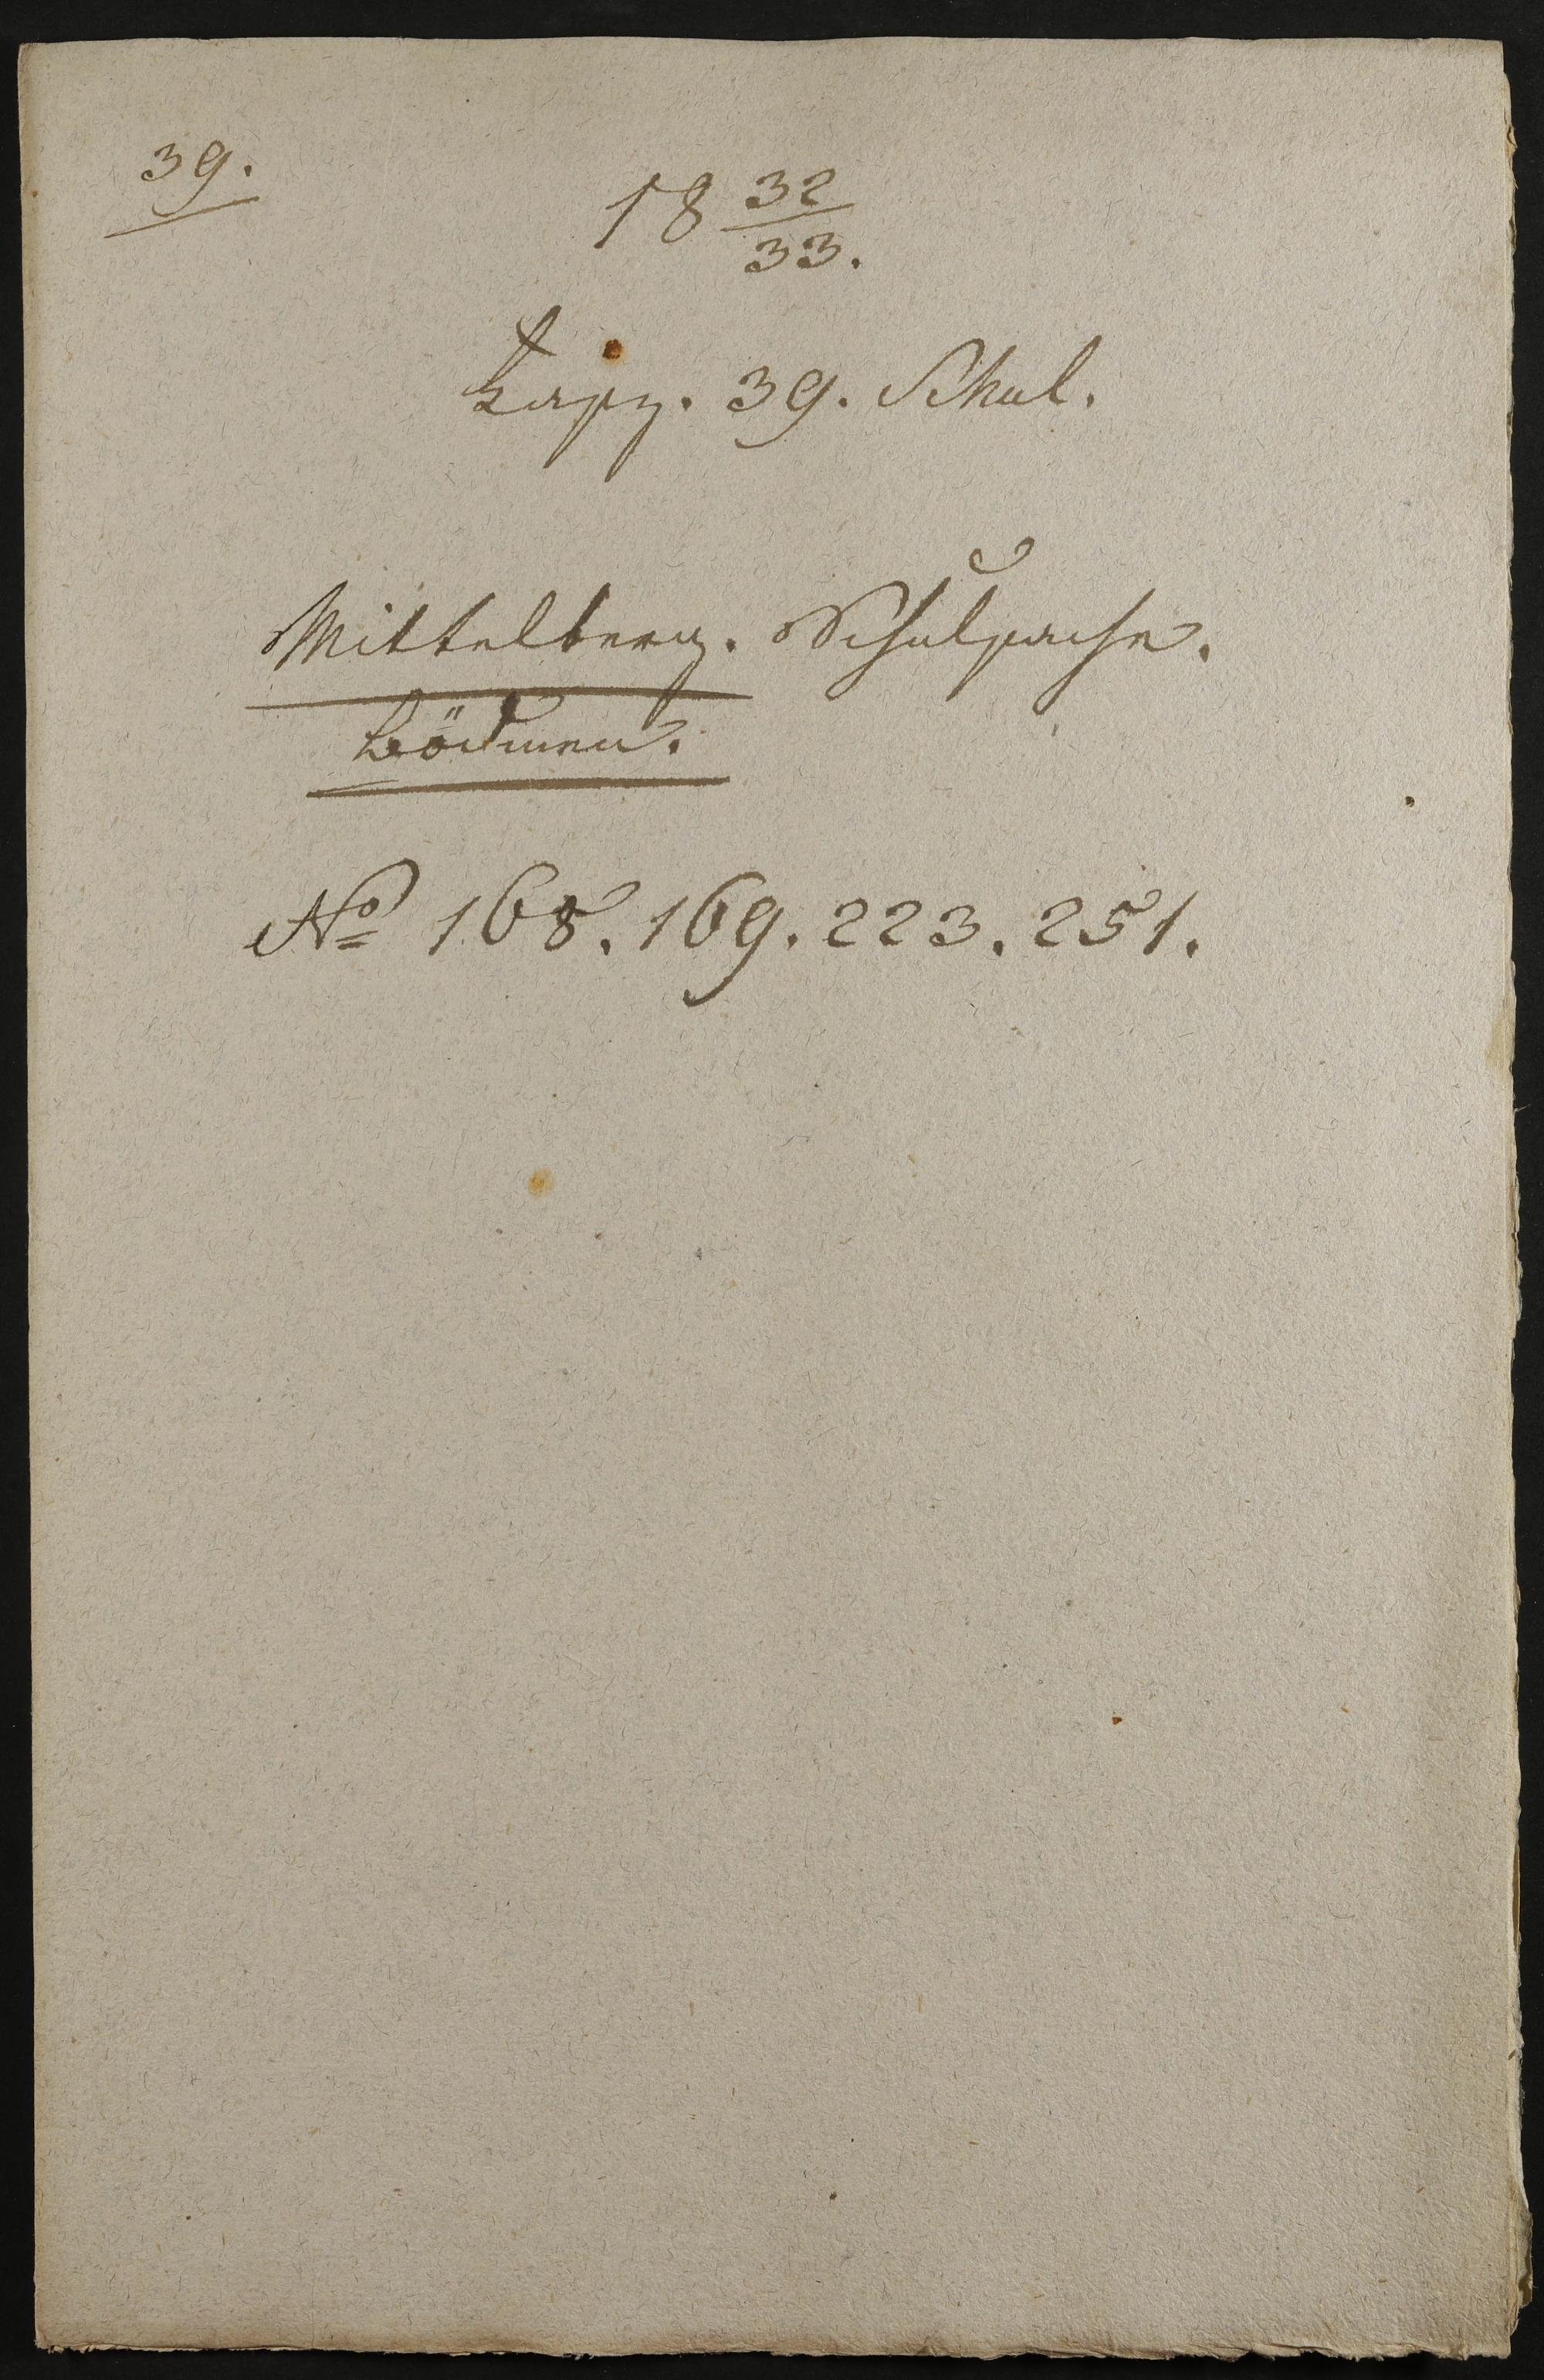 39.
18 32/33.
Fasz. 39. Schul.
Mittelberg. Schulsache.
Bödmen.
No 168. 169. 223. 251.